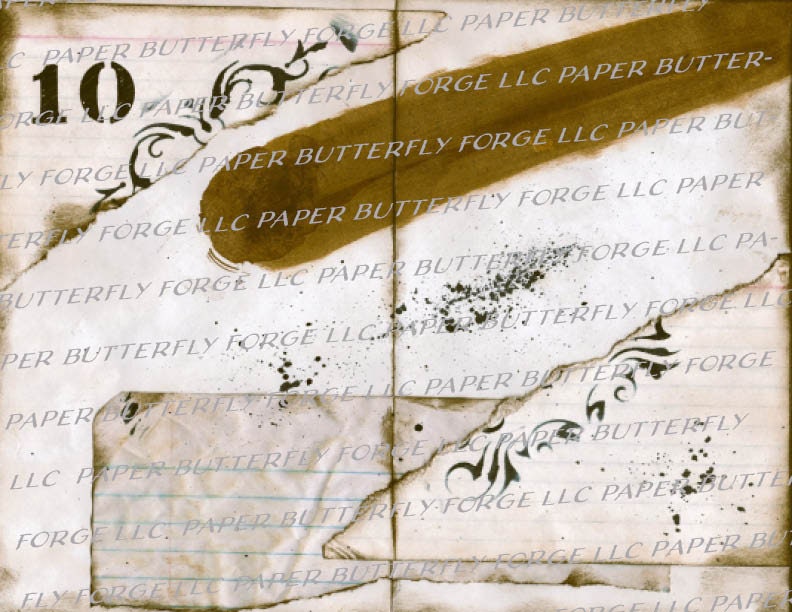 C PAPER BUTTERFLY FORGE LLC PAPER BUTTERFLY
10
ORGE LLC PAPER BUTTERFLY FORGE LLC PAPER BUTTER-
LY FORGE LLC PAPER BUTTERFLY FORGE LLC PAPER BUT
TERFLY FORGE LLC PAPER BUTTERFLY FORGE LLC PAPER
BUTTERFLY FORGE LLC PAPER BUTTERFLY FORGE LLC PA-
PER BUTTERFLY FORGE LLC PAPER BUTTERFLY FORGE LLC
PAPER BUTTERFLY FORGE LLC PAPER BUTTERFLY FORGE
LLC PAPER BUTTERFLY FORGE LLC PAPER BUTTERFLY
FORGE LLC PAPER BUTTERFLY FORGE LLC PAPER BUTTER
FLY FORGE LLC PAPER BUTTERFLY FORGE LLC PAPER BU
FORGE LLC PAPER